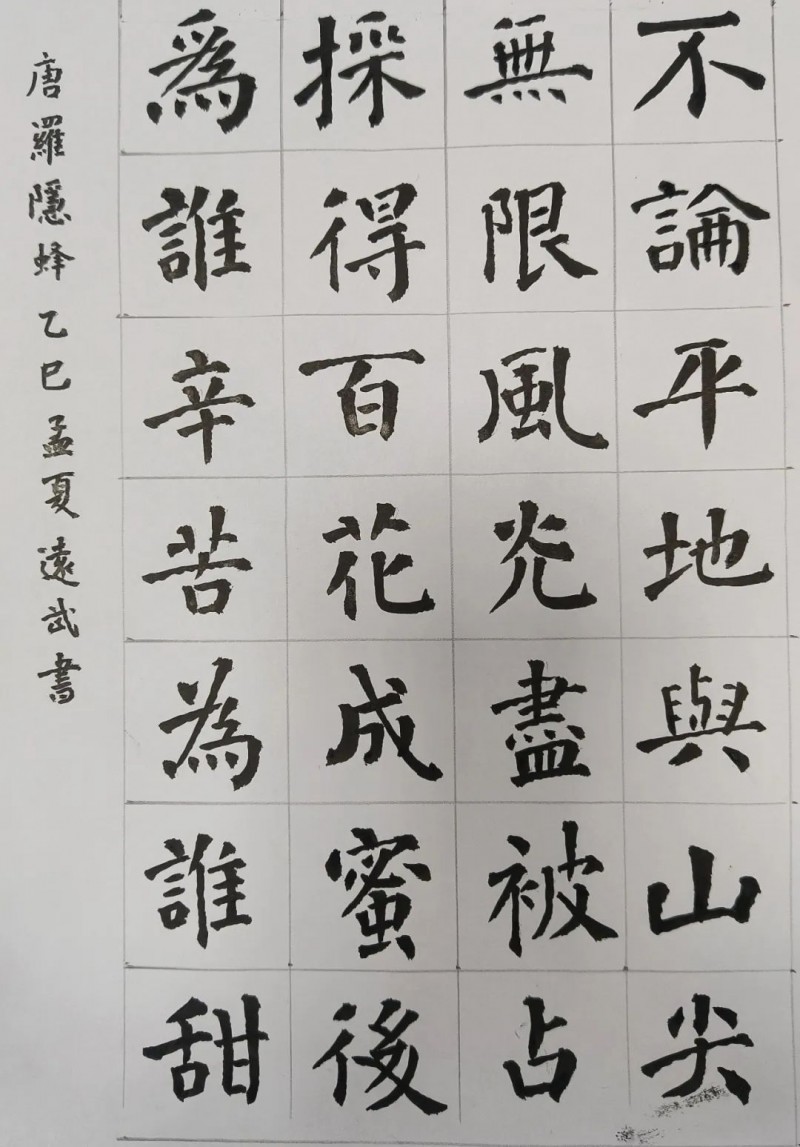 不論平地與山尖
無限風光盡被占
採得百花成蜜後
爲誰辛苦為誰甜
唐羅隱蜂乙巳孟夏遠武書